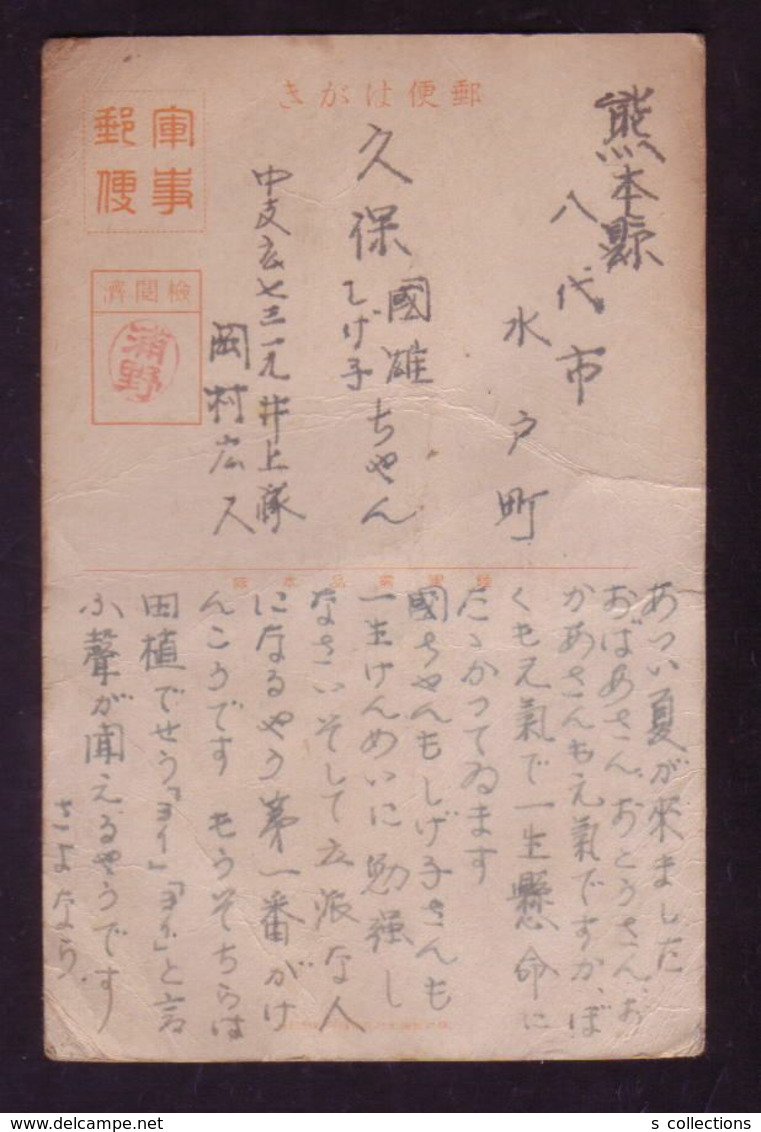 郵便はがき
軍事
郵便
檢閲濟
浦野
熊本縣
八代市
水戸町
久保國雄ちゃん
しげ子
井上隊
岡村
あつい夏が來ました
おばあさん、おとうさん、お
かあさんも元氣ですか、ぼ
くも元氣で一生懸命に
たゝかつてゐます
國ちやんもしげ子さんも
一生けんめいに勉强し
なさいそして立派な人
になるやう第一番がけ
んこうです もうそちらは
田植でせう「ヨイ」「ヨイ」と言
ふ聲が聞えるやうです
さよなら
s collections